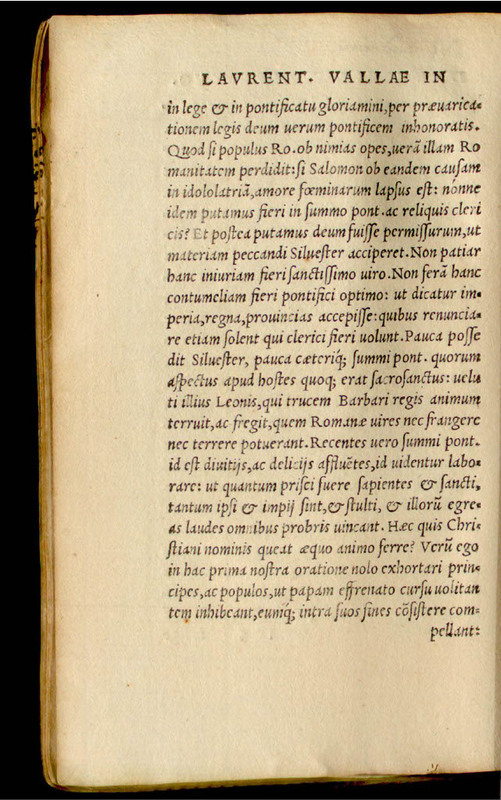 LAVRENT. VALLAE IN
in lege & in pontificatu gloriamini, per præuarica-
tionem legis deum uerum pontificem inhonoratis.
Quod si populus Ro. ob nimias opes, uerã illam Ro
manitatem perdidit: si Salomon ob eandem causam
in idololatriã, amore fœminarum lapsus est: nónne
idem putamus fieri in summo pont. ac reliquis cleri
cis? Et postea putamus deum fuisse permissurum, ut
materiam peccandi Siluester acciperet. Non patiar
hanc iniuriam fieri sanctissimo uiro. Non ferã hanc
contumeliam fieri pontifici optimo: ut dicatur im-
peria, regna, prouincias accepisse: quibus renuncia-
re etiam solent qui clerici fieri uolunt. Pauca posse
dit Siluester, pauca cæteriq; summi pont. quorum
aspectus apud hostes quoq; erat sacrosanctus: uelu
ti illius Leonis, qui trucem Barbari regis animum
terruit, ac fregit, quem Romanæ uires nec frangere
nec terrere potuerant. Recentes uero summi pont.
id est diuitijs, ac delicijs affluẽtes, id uidentur labo-
rare: ut quantum prisci fuere sapientes & sancti,
tantum ipsi & impij sint, & stulti, & illorũ egre-
as laudes omnibus probris uincant. Hæc quis Chri-
stiani nominis queat æquo animo ferre? Verũ ego
in hac prima nostra oratione nolo exhortari prin-
cipes, ac populos, ut papam effrenato cursu uolitan
tem inhibeant, eumq; intra suos fines cõsistere com-
pellant: